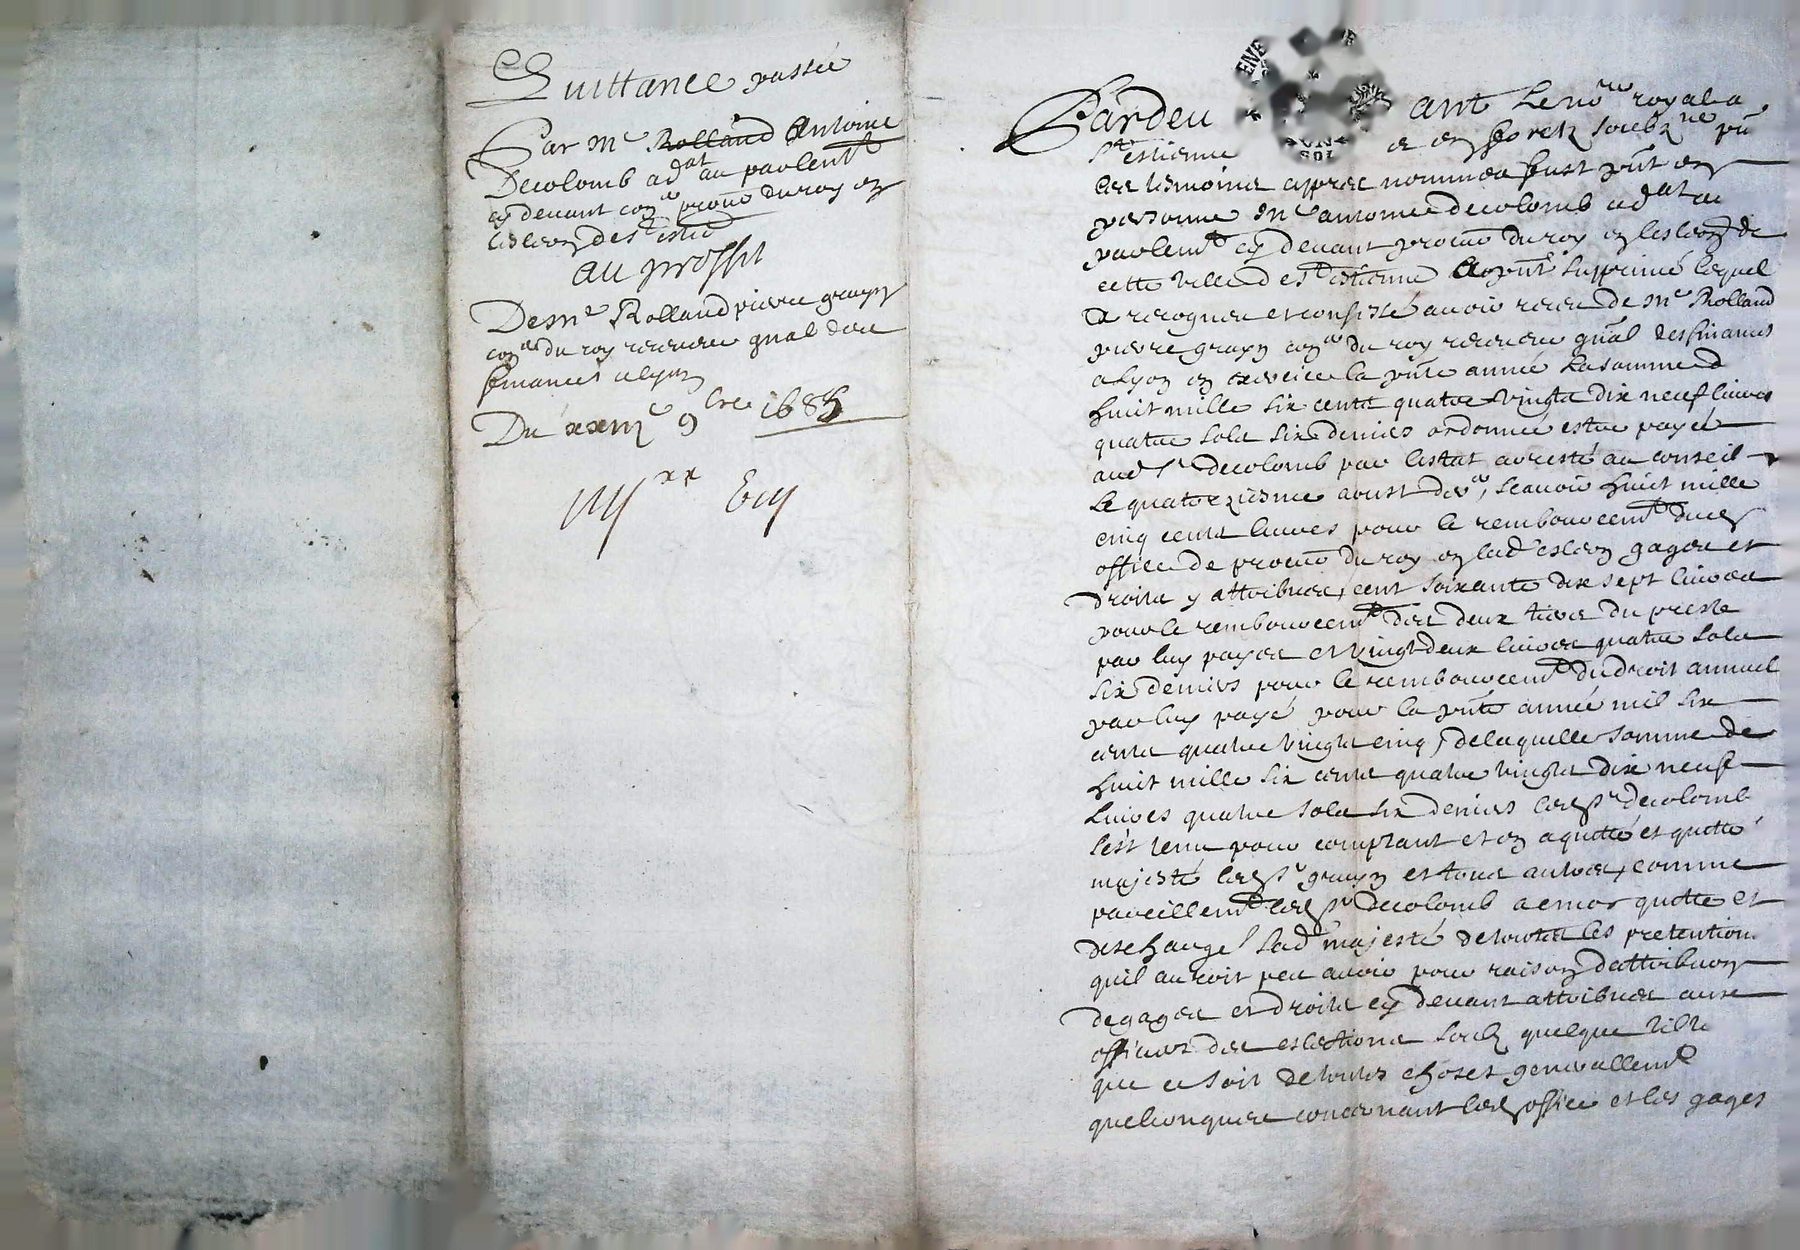 Quittance passée
Par Me Rolland Antoine
Decolomb adat au parlemt
cy devant conr procur du roy en
leslecon de St estie
au proffit
De me Rolland pierre grayn
conr du roy receveur gnal des
finances a lyon
Du xxiiie 9bre 1685
iiijxx
Pardevant Le nore royal a
St estienne et en forez soubzne pnt
les tesmoins appres nommes fust pnt en
personne Me antoine decolomb adat au
parlemt cy devant procur du roy en leslecon de
cette ville de St estienne a pnt supprimé lequel
a recogneu et confessé avoir receu de Me Rolland
pierre grayn conr du roy receveur gnal des finances
a Lyon en exercice la pnte année La somme de
huit mille six cents quatre vingts dix neuf livres
quatre sols six deniers ordonnée estre payée
aud Sr decolomb par lestat arresté au conseil
le quatorziesme aoust der, scavoir huit mille
cinq cents livres pour le remboursemt dud
office de procur du roy en lad eslecon gages et
droits y attribues, cent soixante dix sept livres
pour le remboursemt des deux tiers du prest
par luy payes et vingt deux livres quatre sols
six deniers pour le remboursemt du droit annuel
par luy payé pour la pnte année mil six
cents quatre vingts cinq, de laquelle somme de
huit mille six cents quatre vingts dix neuf
livres quatre sols six deniers led Sr decolomb
sest tenu pour comptant et en a quitté et quitte
majesté led Sr grayn et tous autres, comme
pareillemt led Sr decolomb a encor quitte et
descharge sad majesté de toutes les pretention
quil auroit peu avoir pour raison dattribuon
de gages et droits cy devant attribues aux
officiers des eslections soubz quelque titre
que ce soit de toutes choses generallemt
quelconques concernant led office et les gages